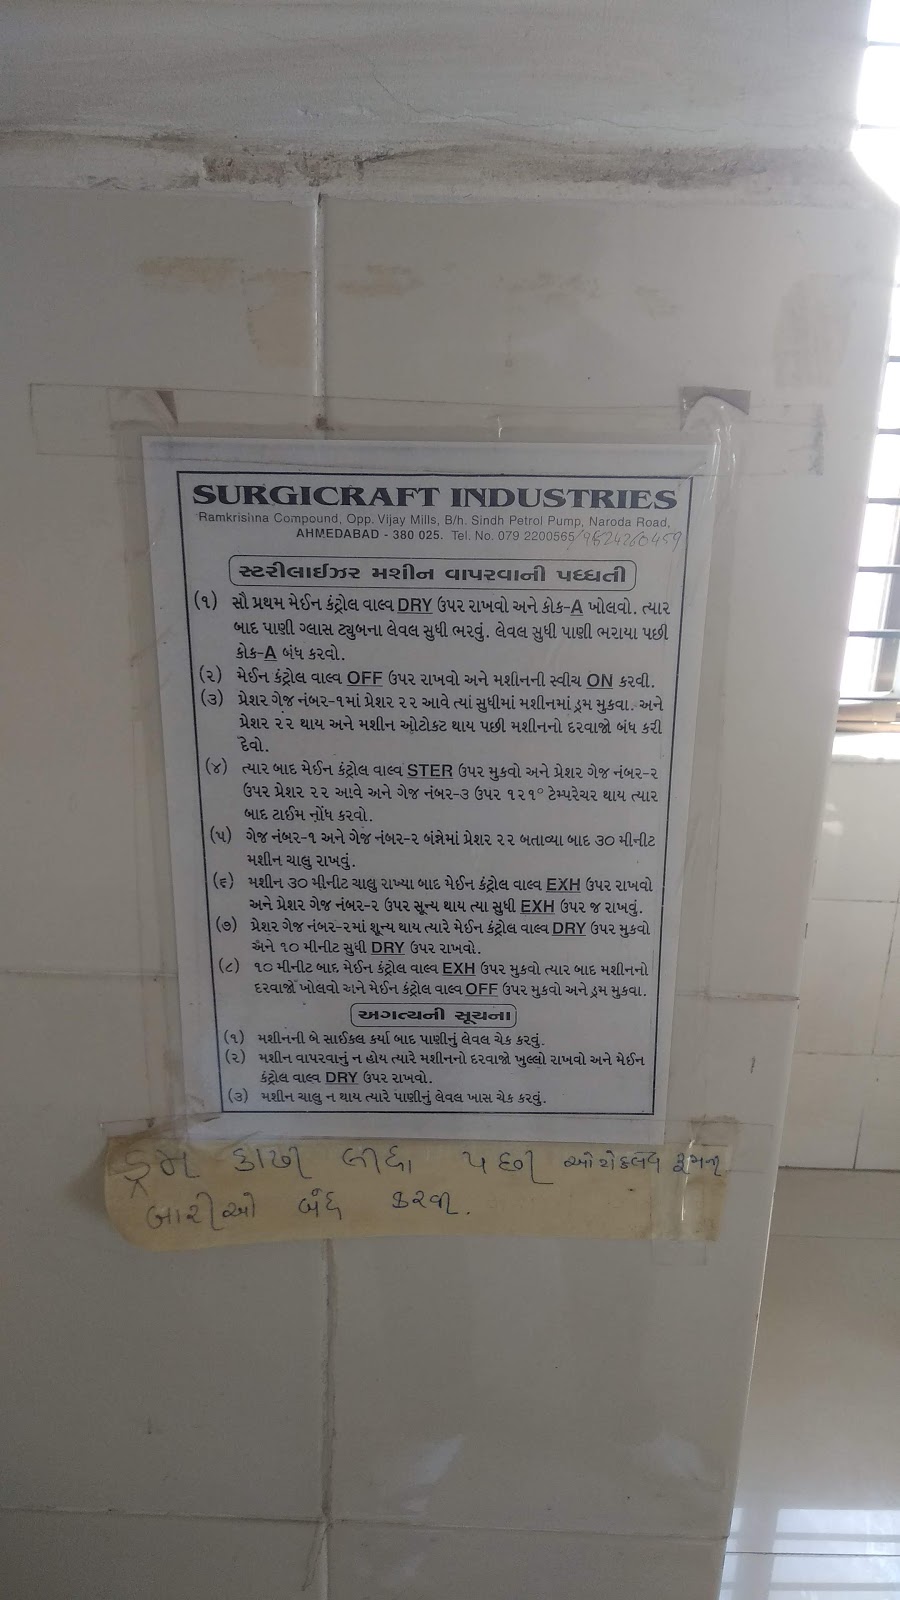 SURGICRAFT INDUSTRIES
Ramkrishna Compound, Opp. Vijay Mills, B/h. Sindh Petrol Pump, Naroda Road,
AHMEDABAD - 380 025. Tel. No. 079 2200565/9824260459
સ્ટરીલાઈઝર મશીન વાપરવાની પધ્ધતી
(૧) સૌ પ્રથમ મેઈન કંટ્રોલ વાલ્વ DRY ઉપર રાખવો અને કોક-A ખોલવો. ત્યાર
બાદ પાણી ગ્લાસ ટ્યુબના લેવલ સુધી ભરવું. લેવલ સુધી પાણી ભરાયા પછી
કોક-A બંધ કરવો.
(૨) મેઈન કંટ્રોલ વાલ્વ OFF ઉપર રાખવો અને મશીનની સ્વીચ ON કરવી.
(૩) પ્રેશર ગેજ નંબર-૧માં પ્રેશર ૨૨ આવે ત્યાં સુધીમાં મશીનમાં ડ્રમ મુકવા. અને
પ્રેશર ૨૨ થાય અને મશીન ઓટોકટ થાય પછી મશીનનો દરવાજો બંધ કરી
દેવો.
(૪) ત્યાર બાદ મેઈન કંટ્રોલ વાલ્વ STER ઉપર મુકવો અને પ્રેશર ગેજ નંબર-૨
ઉપર પ્રેશર ૨૨ આવે અને ગેજ નંબર-૩ ઉપર ૧૨૧° ટેમ્પરેચર થાય ત્યાર
બાદ ટાઈમ નોંધ કરવો.
(૫) ગેજ નંબર-૧ અને ગેજ નંબર-૨ બંન્નેમાં પ્રેશર ૨૨ બતાવ્યા બાદ ૩૦ મીનીટ
મશીન ચાલુ રાખવું.
(૬) મશીન ૩૦ મીનીટ ચાલુ રાખ્યા બાદ મેઈન કંટ્રોલ વાલ્વ EXH ઉપર રાખવો
અને પ્રેશર ગેજ નંબર-૨ ઉપર સૂન્ય થાય ત્યા સુધી EXH ઉપર જ રાખવું.
(૭) પ્રેશર ગેજ નંબર-૨માં શૂન્ય થાય ત્યારે મેઈન કંટ્રોલ વાલ્વ DRY ઉપર મુકવો
અને ૧૦ મીનીટ સુધી DRY ઉપર રાખવો.
(૮) ૧૦ મીનીટ બાદ મેઈન કંટ્રોલ વાલ્વ EXH ઉપર મુકવો ત્યાર બાદ મશીનનો
દરવાજો ખોલવો અને મેઈન કંટ્રોલ વાલ્વ OFF ઉપર મુકવો અને ડ્રમ મુકવા.
અગત્યની સૂચના
(૧) મશીનની બે સાઈકલ કર્યા બાદ પાણીનું લેવલ ચેક કરવું.
(૨) મશીન વાપરવાનું ન હોય ત્યારે મશીનનો દરવાજો ખુલ્લો રાખવો અને મેઈન
કંટ્રોલ વાલ્વ DRY ઉપર રાખવો.
(૩) મશીન ચાલુ ન થાય ત્યારે પાણીનું લેવલ ખાસ ચેક કરવું.
ડ્રમ કાઢી લીધા પછી ઓટોકલેવ રૂમની
બારીઓ બંધ કરવી.